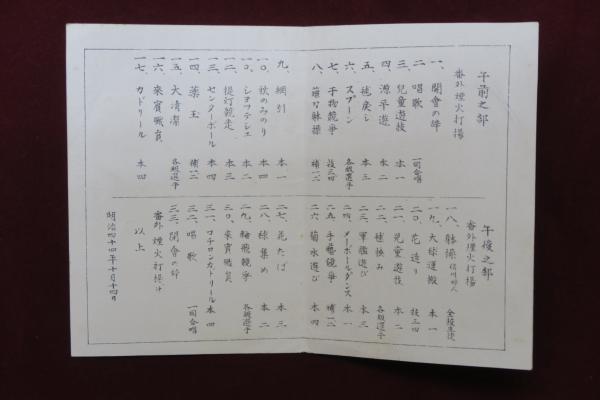 午前之部
番外煙火打揚
一、開會の辞
二、唱歌 一同合唱
三、児童遊技 本一
四、源平遊 本二
五、毬戻し 本三
六、スプーン 各級選手
七、干物競争 技三四
八、薙刀躰操 補一二
九、綱引 本一
一〇、秋のみのり 本四
一一、シヨツテシエ 本二
一二、提灯競走 本三
一三、センターボール 本四
一四、薬玉 補一二
一五、大清潔 各級選手
一六、來賓職員
一七、カドリール 本四
午後之部
番外煙火打揚
一八、躰操 全校生徒
一九、大球運搬 本一
二〇、花造り 技三四
二一、児童遊技 本二
二二、毬投み 各級選手
二三、軍艦遊び 本三
二四、メーポールダンス 本一
二五、手藝競争 補一二
二六、菊水遊び 本四
二七、花たば 本三
二八、球集め 本二
二九、輪飛競争 各級選手
三〇、來賓職員
三一、コチロンカトリール 本四
三二、唱歌 一同合唱
三三、閉會の辞
番外煙火打揚け
以上
明治四十四年十月十四日